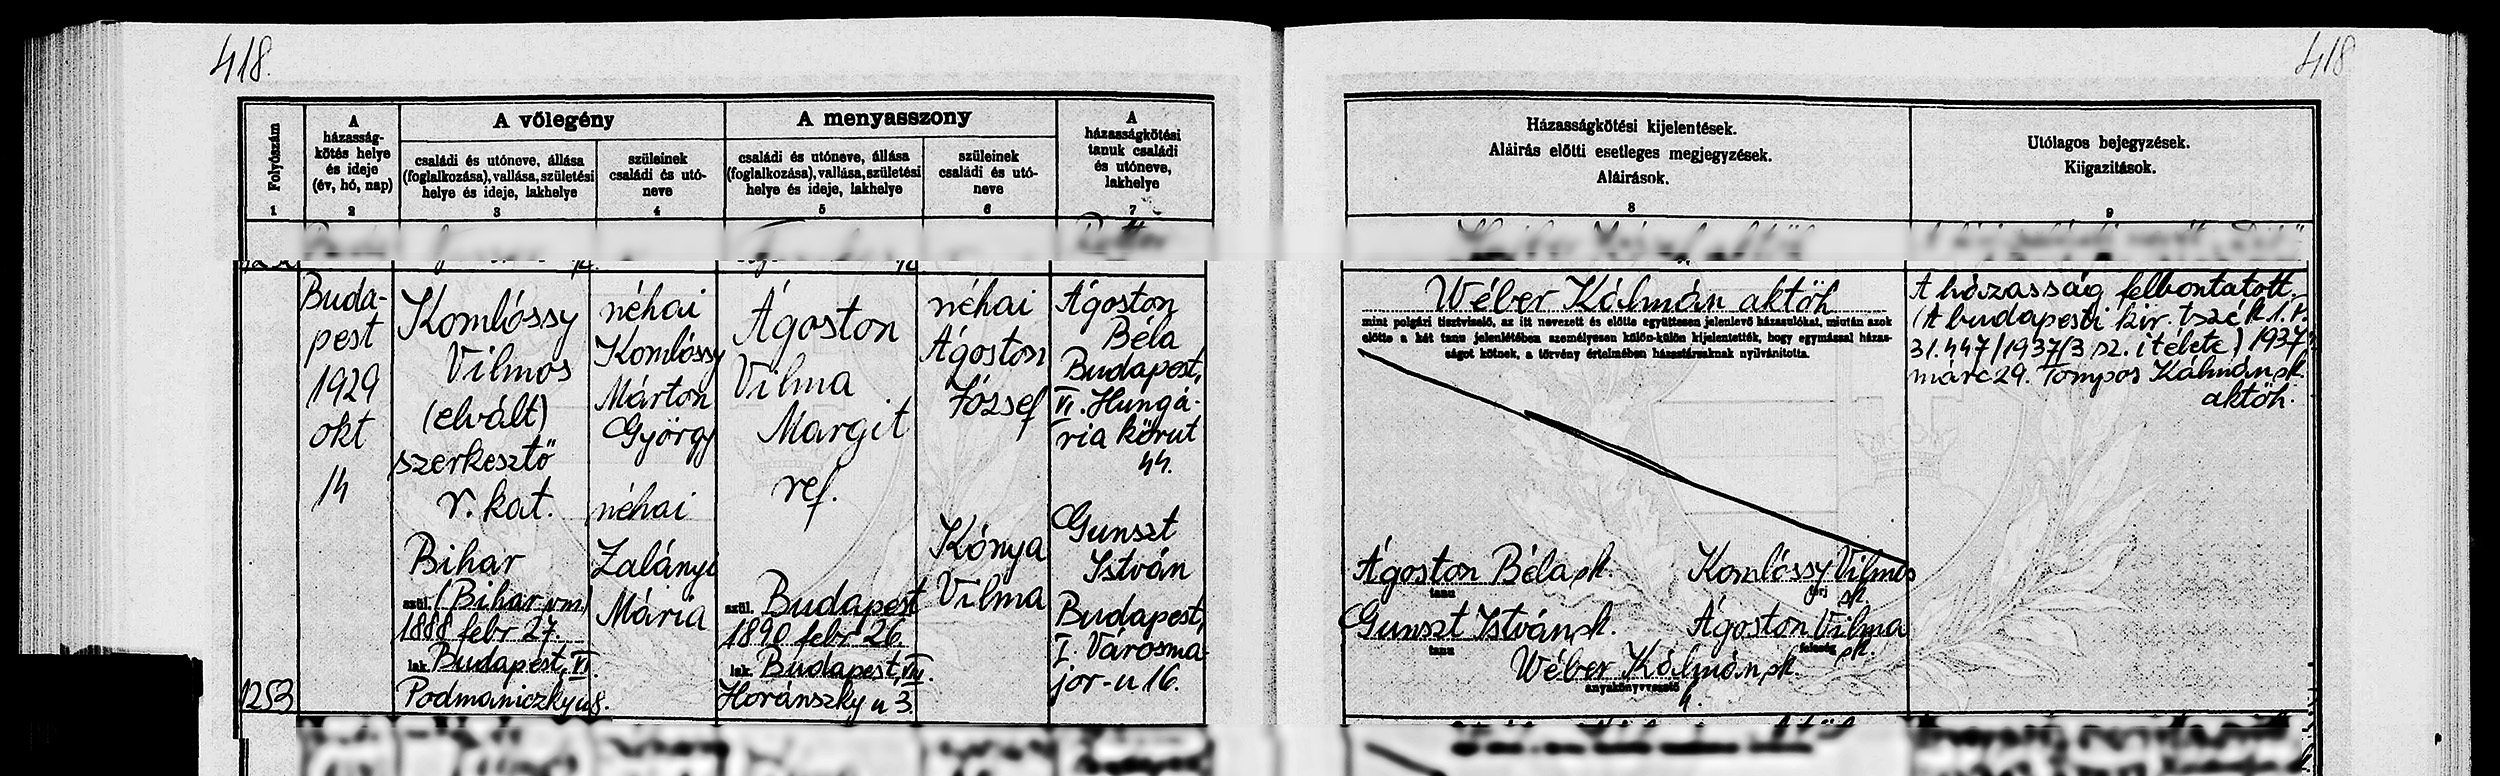 418.
418
Folyószám
1
A
házasság-
kötés helye
és ideje
(év, hó, nap)
2
A vőlegény
családi és utóneve, állása
(foglalkozása), vallása, születési
helye és ideje, lakhelye
3
szüleinek
családi és utó-
neve
4
A menyasszony
családi és utóneve, állása
(foglalkozása), vallása, születési
helye és ideje, lakhelye
5
szüleinek
családi és utó-
neve
6
A
házasságkötési
tanuk családi
és utóneve,
lakhelye
7
Házasságkötési kijelentések.
Aláirás előtti esetleges megjegyzések.
Aláirások.
8
Utólagos bejegyzések.
Kiigazitások.
9
1253
Buda-
pest
1929
okt
14
Komlóssy
Vilmos
(elvált)
szerkesztő
r. kat.
Bihar
szül. (Bihar vm.)
1888 febr 27.
lak. Budapest, VI.
Podmaniczky u 8.
néhai
Komlóssy
Márton
György
néhai
Zalányi
Mária
Ágoston
Vilma
Margit
ref.
szül. Budapest
1890 febr 26.
lak. Budapest, VIII.
Horánszky u 3.
néhai
Ágoston
József
Kónya
Vilma
Ágoston
Béla
Budapest,
VI. Hungá-
ria körut
44.
Gunszt
István
Budapest,
I. Városma-
jor-u 16.
Wéber Kálmán aktöh
mint polgári tisztviselő, az itt nevezett és előtte együttesen jelenlevő házasulókat, miután azok
előtte a két tanu jelenlétében személyesen külön-külön kijelentették, hogy egymással házas-
ságot kötnek, a törvény értelmében házastársaknak nyilvánitotta.
Ágoston Béla sk.
tanu
Komlóssy Vilmos
férj sk.
Gunszt István sk.
tanu
Ágoston Vilma
feleség sk.
Wéber Kálmán sk.
anyakönyvvezető
A házasság felbontatott.
(A budapesti kir. tszék 1. P.
31.447/1937/3 sz. itélete) 1937
márc 29. Tompos Kálmán sk.
aktöh.